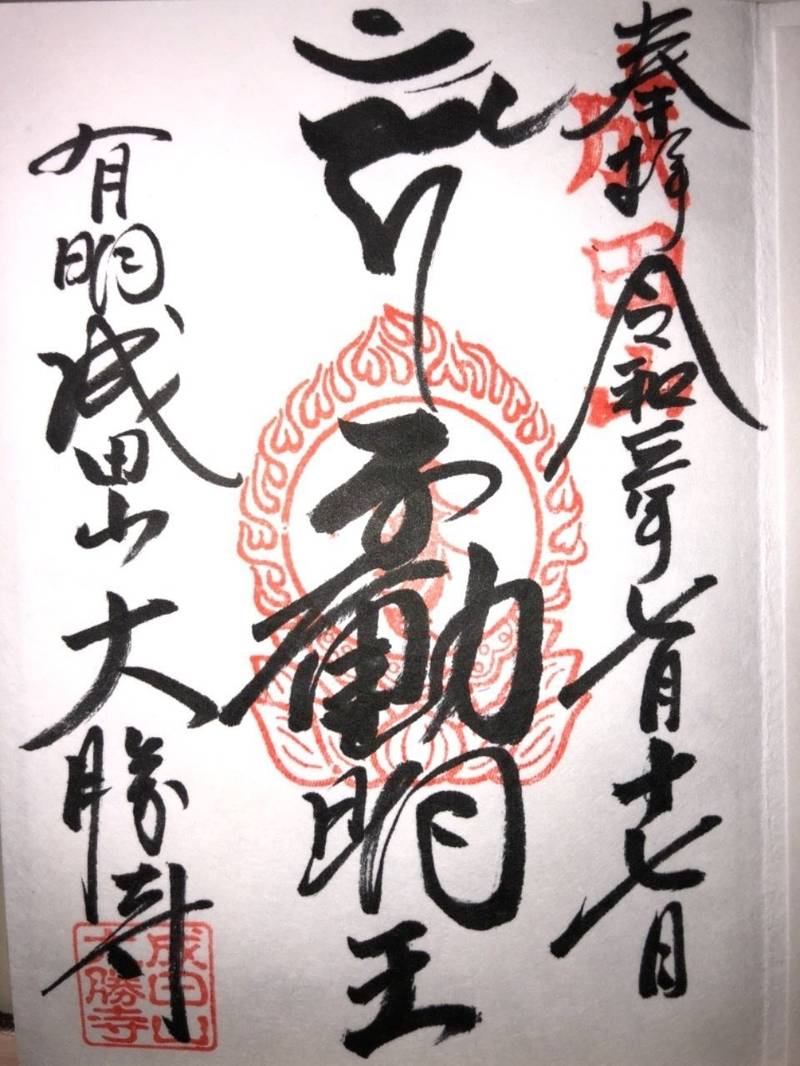 奉拝 令和三年七月十七日
成田山
不動明王
有明成田山 大勝寺
成田山
大勝寺